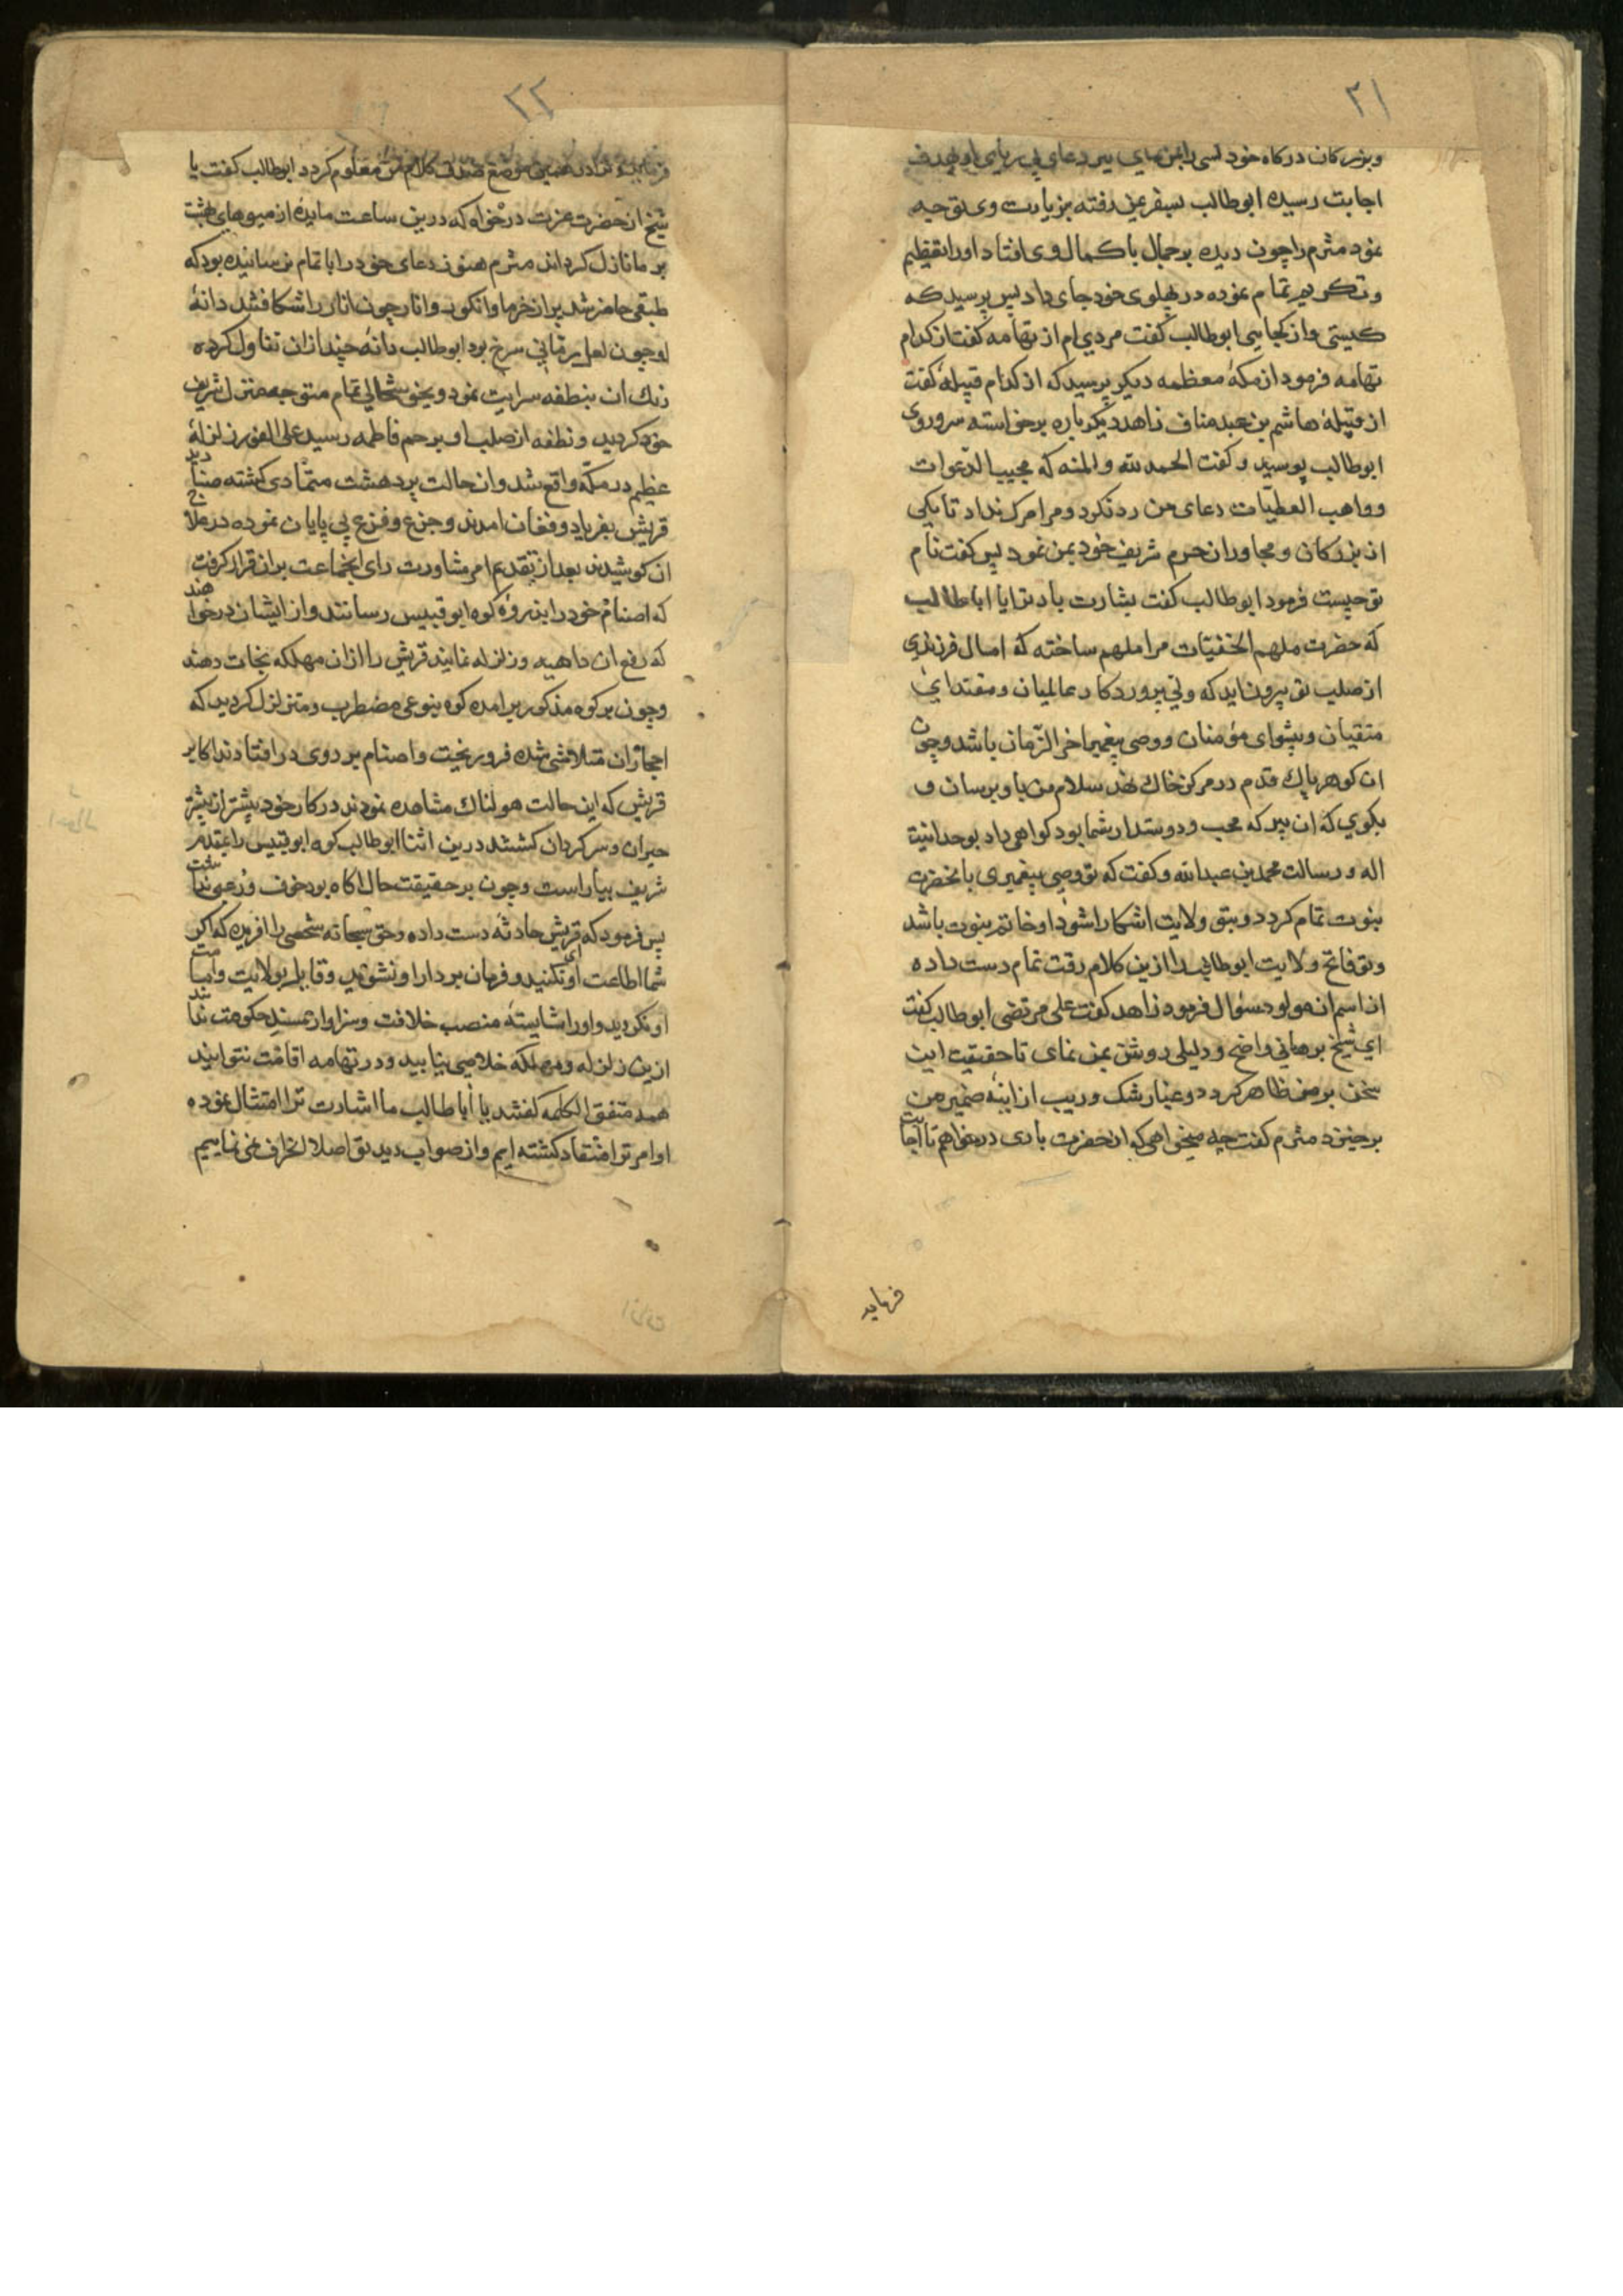 ۲۱
وبزرکان درکاه خود کسی را بمن نمای پیر دعای بی ریای او بهدف
اجابت رسیده ابوطالب بسفر یمن رفته بزیارت وی توجه
نمود مثرم را چون دیده بر جمال با کمال وی افتاد اورا تعظیم
وتکریم تمام نموده در پهلوی خود جای داد پس پرسید که
کیستی واز کجایی ابوطالب کفت مردی ام از تهامه کفت از کدام
تهامه فرمود از مکهٔ معظمه دیکر پرسید که از کدام قبیلهٔ کفت
از قبیلهٔ هاشم بن عبد مناف زاهد دیکر باره برخواسته سر وروی
ابوطالب بوسید وکفت الحمد لله والمنه که مجیب الدعوات
وواهب العطیات دعای من رد نکرد ومرا مرک نداد تا یکی
از بزرکان ومجاوران حرم شریف خود بمن نمود پس کفت نام
تو چیست فرمود ابوطالب کفت بشارت باد ترا یا اباطالب
که حضرت ملهم الخفیات مرا ملهم ساخته که امسال فرزندی
از صلب تو بیرون اید که ولی پروردکار عالمیان ومقتدای
متقیان وپیشوای مؤمنان ووصی پیغمبر اخر الزمان باشد وچون
ان کوهر پاک قدم در مرکز خاک نهد سلام من باو برسان و
بکوی که ان پیر که محب ودوستدار شما بود کواهی داد بوحدانیت
اله ورسالت محمد بن عبدالله وکفت که تو وصی پیغمبری بانحضرت
نبوت تمام کردد وبتو ولایت اشکارا شود او خاتم نبوت باشد
وتو فاتح ولایت ابوطالب را ازین کلام رقت تمام دست داده
از اسم ان مولود سؤال فرمود زاهد کفت علی مرتضی ابوطالب کفت
ای شیخ برهانی واضح ودلیلی روشن بمن نمای تا حقیقت این
سخن بر من ظاهر کردد وغبار شک وریب از اینهٔ ضمیر من
برخیزد مثرم کفت چه میخواهی که از حضرت باری درخواهم تا اجابت
فرماید
۲۲
فرماید وترا در همین موضع صدق کلام من معلوم کردد ابوطالب کفت یا
شیخ از حضرت عزت درخواه که درین ساعت مایده از میوهای بهشت
بر ما نازل کرداند مثرم هنوز دعای خود را باتمام نرسانیده بود که
طبقی حاضر شد پر از خرما وانکور وانار چون انار را شکافتند دانهٔ
او چون لعل رمانی سرخ بود ابوطالب دانه چند ازان تناول کرده
رنک ان بنطفه سرایت نمود وبخوشحالی تمام متوجه منزل شریف
خود کردید ونطفه از صلب او برحم فاطمه رسید علی الفور زلزلهٔ
عظیم در مکه واقع شد وان حالت پر دهشت متمادی کشته صنادید
قریش بفریاد وفغان امدند وجزع وفزع بی پایان نموده در علاج
ان کوشیدند بعد از تقدیم امر مشاورت رای انجماعت بران قرار کرفت
که اصنام خود را بر روهٔ کوه ابو قبیس رسانند واز ایشان درخواهند
که رفع ان داهیه وزلزله نمایند قریش را ازان مهلکه نجات دهند
وچون بر کوه مذکور برامده کوه بنوعی مضطرب ومتزلزل کردید که
احجار ان متلاشی شده فرو ریخت واصنام بر روی در افتادند اکابر
قریش که این حالت هولناک مشاهده نمودند در کار خود بیشتر از پیشتر
حیران وسرکردان کشتند درین اثنا ابوطالب کوه ابو قبیس را بمقدم
شریف بیاراست وچون بر حقیقت حال اکاه بود خوف ورعبی نداشت
پس فرمود که قریش حادثه دست داده وحق سبحانه شخصی را افریده که اکر
شما اطاعت او نکنید وفرمان بردار او نشوید وقایل بولایت وامامت
او نکردید واورا شایستهٔ منصب خلافت وسزاوار مسند حکومت ندانید
ازین زلزله ومهلکه خلاصی نیابید ودر تهامه اقامت نتوانید
همه متفق الکلمه کفتند یا اباطالب ما اشارت ترا امتثال نموده
اوامر ترا منقاد کشته ایم واز صواب دید تو اصلا انحراف نمی نماییم